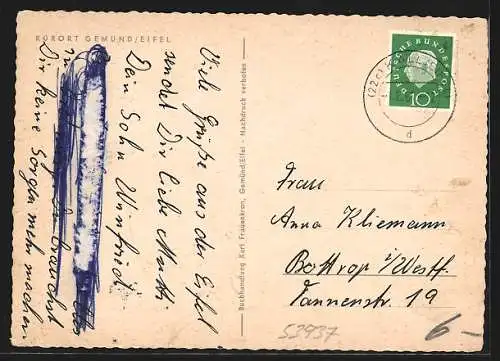 KURORT GEMÜND/EIFEL
Viele Grüße aus der Eifel
sendet Dir liebe Mutti
Dein Sohn Winfried.
Du brauchst
Dir keine Sorgen mehr machen.
Buchhandlung Karl Frauenkron, Gemünd/Eifel - Nachdruck verboten
DEUTSCHE BUNDESPOST
10
(22c)
d
Frau
Anna Kliemann
Bottrop i/Westf.
Tannenstr. 19
53937
6-